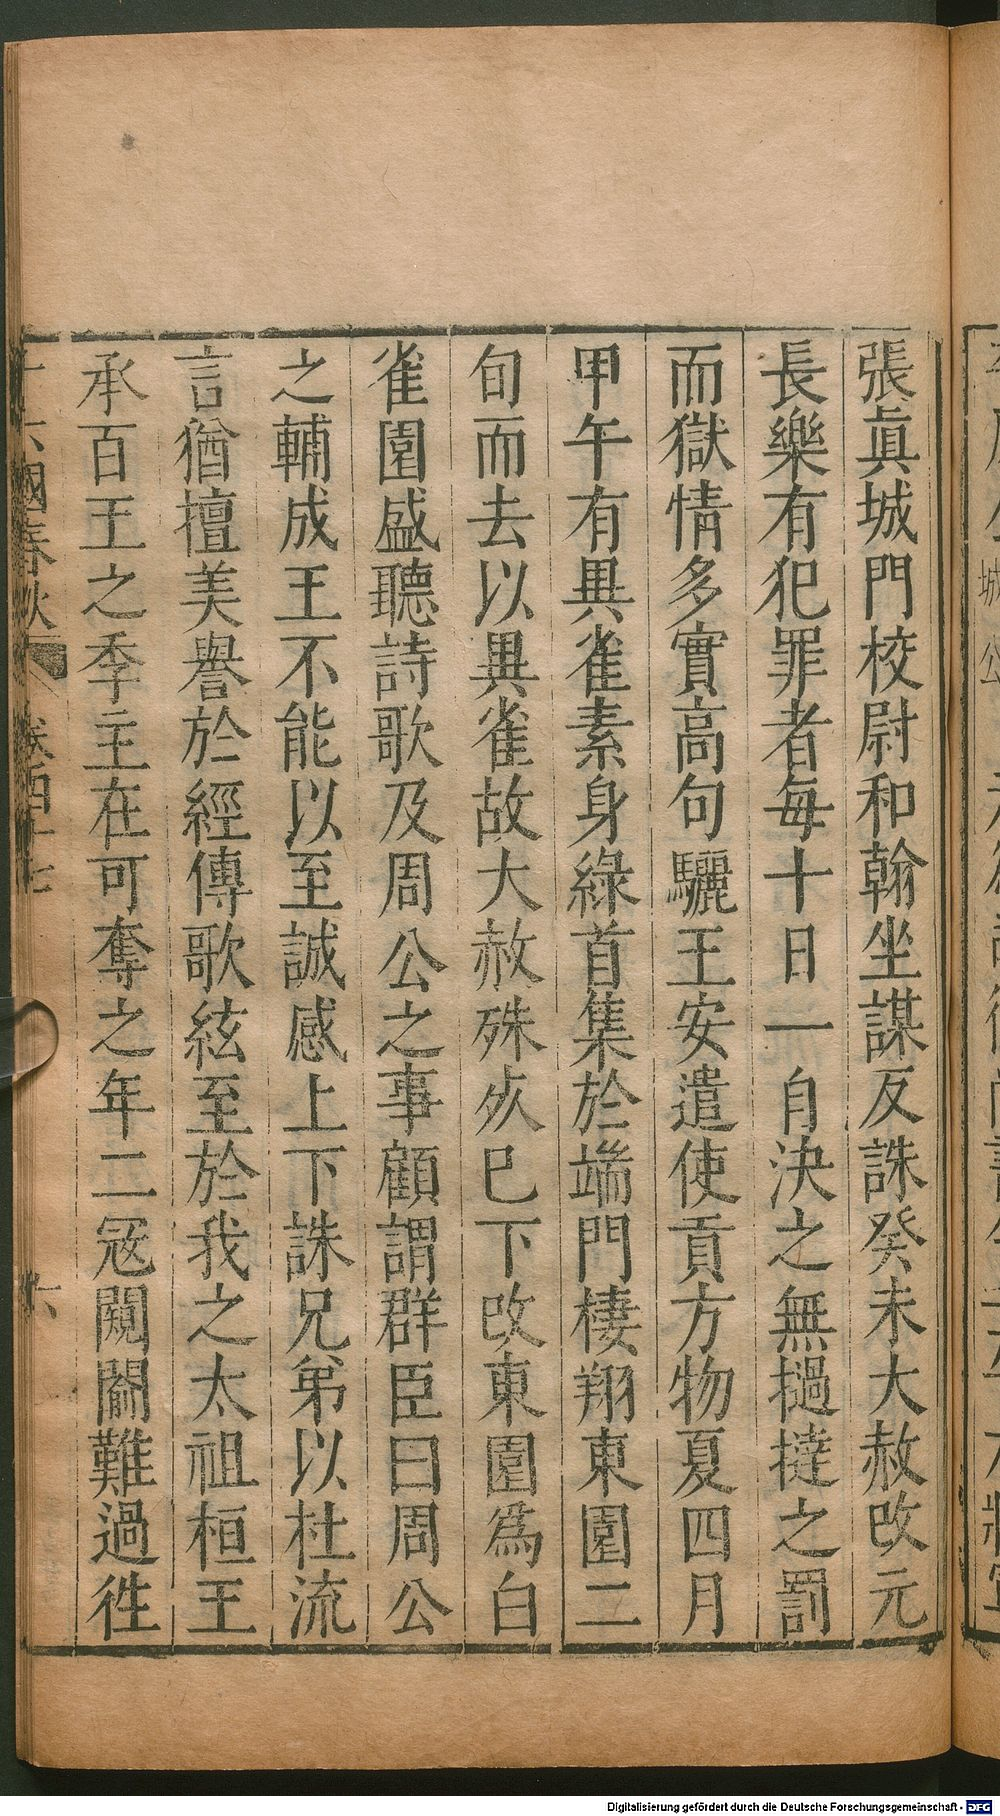 張眞城門校尉和翰坐謀反誅癸未大赦改元
長樂有犯罪者每十日一自決之無撾撻之罰
而獄情多實高句驪王安遣使貢方物夏四月
甲午有異雀素身綠首集於端門棲翔東園二
旬而去以異雀故大赦殊死巳下改東園爲白
雀園盛聽詩歌及周公之事顧謂群臣曰周公
之輔成王不能以至誠感上下誅兄弟以杜流
言猶擅美譽於經傳歌絃至於我之太祖桓王
承百王之季主在可奪之年二冦闚䦱難過徃
十六國春秋 卷四十七 六
Digitalisierung gefördert durch die Deutsche Forschungsgemeinschaft - DFG